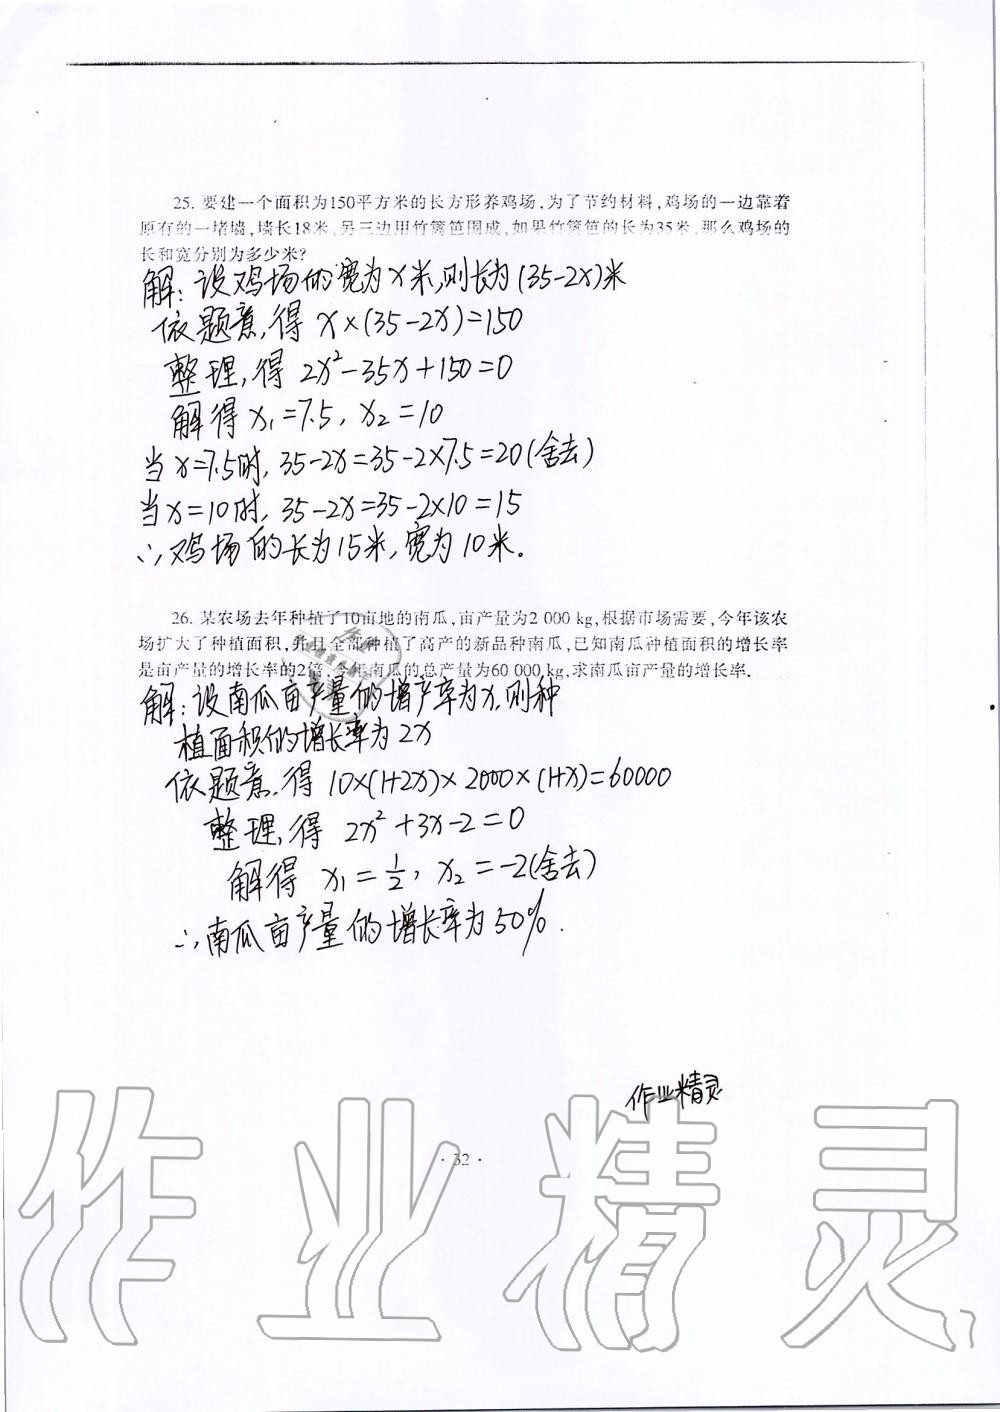 25. 要建一个面积为150平方米的长方形养鸡场,为了节约材料,鸡场的一边靠着
原有的一堵墙,墙长18米,另三边用竹篱笆围成,如果竹篱笆的长为35米,那么鸡场的
长和宽分别为多少米?
解:设鸡场的宽为x米,则长为(35-2x)米
依题意,得 x×(35-2x)=150
整理,得 2x²-35x+150=0
解得 x₁=7.5, x₂=10
当x=7.5时, 35-2x=35-2×7.5=20(舍去)
当x=10时, 35-2x=35-2×10=15
∴鸡场的长为15米,宽为10米.
26. 某农场去年种植了10亩地的南瓜,亩产量为2 000 kg,根据市场需要,今年该农
场扩大了种植面积,并且全部种植了高产的新品种南瓜,已知南瓜种植面积的增长率
是亩产量的增长率的2倍,今年南瓜的总产量为60 000 kg,求南瓜亩产量的增长率.
解:设南瓜亩产量的增产率为x,则种
植面积的增长率为2x
依题意,得 10×(1+2x)×2000×(1+x)=60000
整理,得 2x²+3x-2=0
解得 x₁=1/2, x₂=-2(舍去)
∴南瓜亩产量的增长率为50%.
作业精灵
· 32 ·
作业精灵